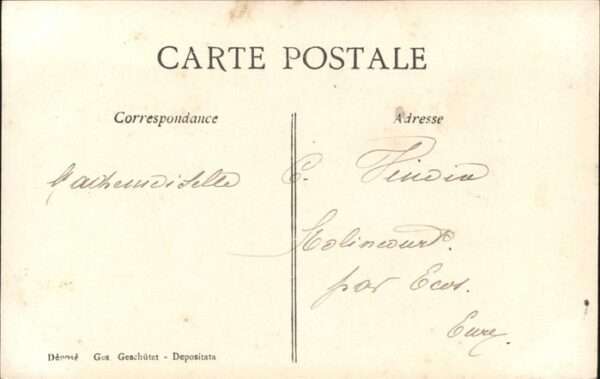 CARTE POSTALE
Correspondance
Adresse
Mademoiselle E. Vindin
Molincourt.
par Ecos.
Eure.
Déposé Ges Geschützt - Depositata